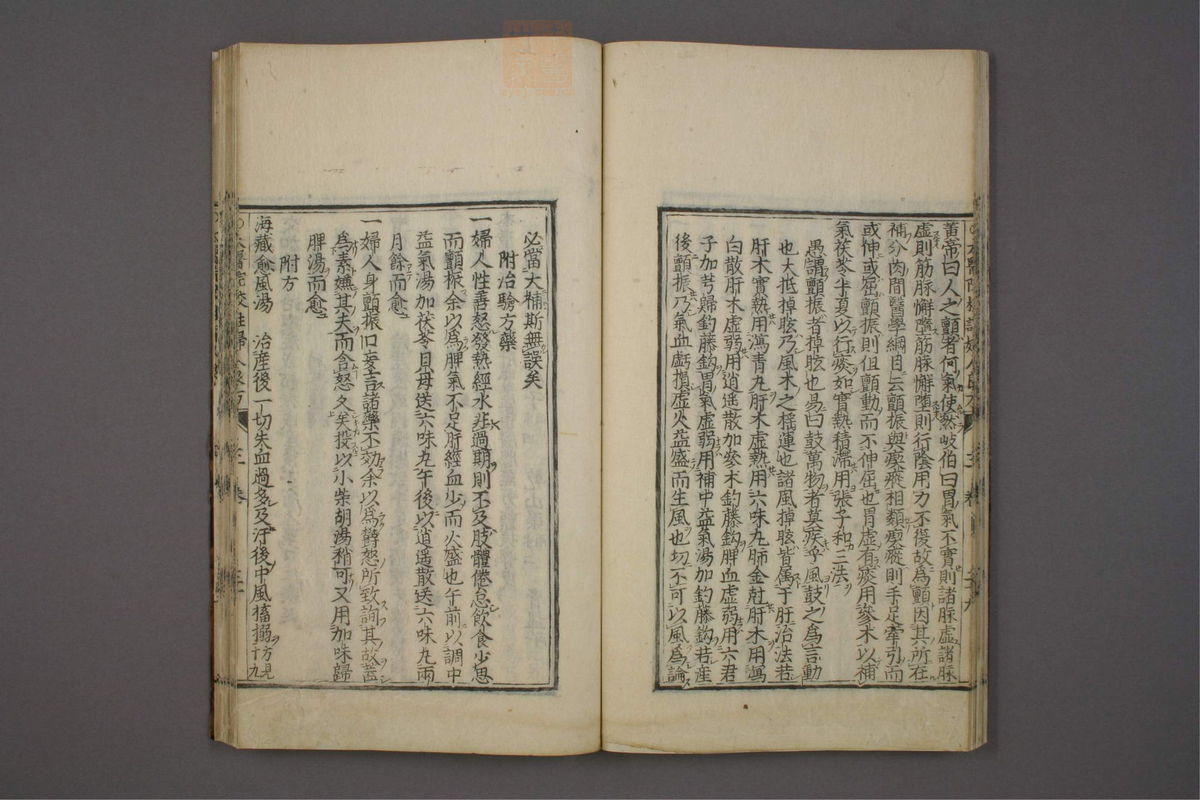 黃帝曰人之顫者何氣使然岐伯曰胃氣不實則諸脉虛諸脉
虛則筋脉懈墮筋脉懈墮則行陰用力不復故爲顫因其所在
補分肉間醫學綱目云顫振與瘈瘲相類瘈瘲則手足牽引而
或伸或屈顫振則但顫動而不伸屈也胃虛有痰用參术以補
氣茯苓半夏以行痰如實熱積滯用張子和三法
愚謂顫振者掉眩也易曰鼓萬物者莫疾乎風鼓之爲言動
也大抵掉眩乃風木之搖運也諸風掉眩皆屬于肝治法若
肝木實熱用瀉青丸肝木虛熱用六味丸肺金尅肝木用瀉
白散肝木虛弱用逍遥散加參术釣藤鈎脾血虛弱用六君
子加芎歸釣藤鈎胃氣虛弱用補中益氣湯加釣藤鈎若産
後顫振乃氣血虧損虛火益盛而生風也切不可以風爲論
必當大補斯無誤矣
附治驗方藥
一婦人性善怒發熱經水非過期則不及肢體倦怠飲食少思
而顫振余以爲脾氣不足肝經血少而火盛也午前以調中
益氣湯加茯苓貝母送六味丸午後以逍遥散送六味丸兩
月餘而愈
一婦人身顫振口妄言諸藥不効余以爲欝怒所致詢其故蓋
爲素嫌其夫而含怒久矣投以小柴胡湯稍可又用加味歸
脾湯而愈
附方
海藏愈風湯　治産後一切失血過多及汗後中風搐搦方見